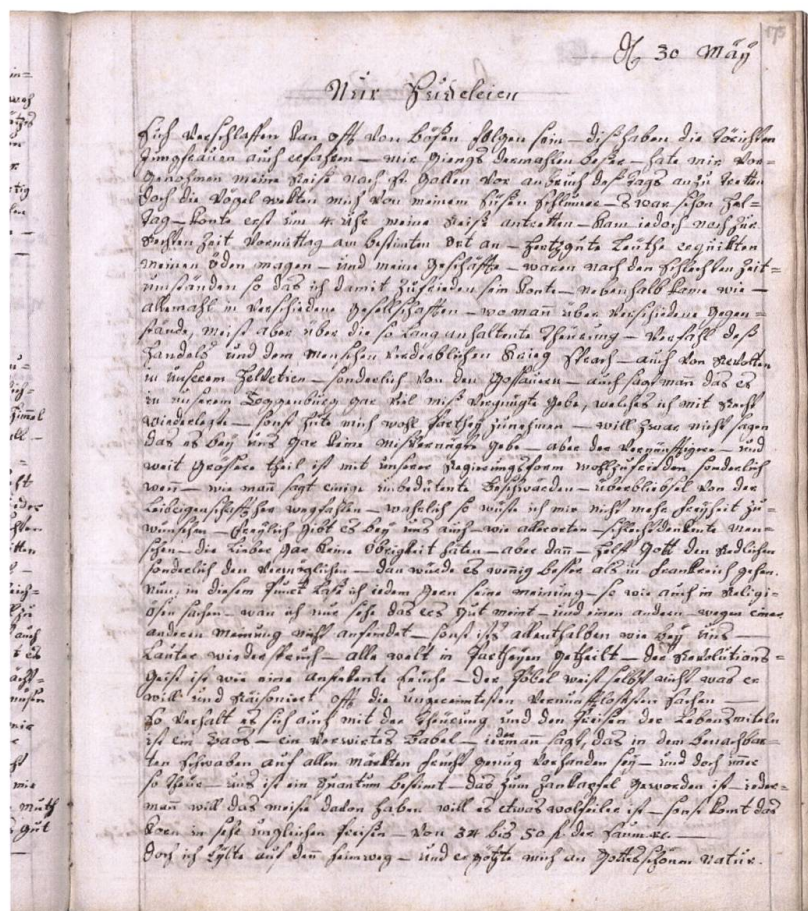 175
D. 30 Mäÿ
Nur Sudeleien
Sich verschlaffen kan offt von bösen folgen sein – diß haben die törichten
Jungfrauen auch erfahren – mir giengs dermahlen besser – hate mir vor=
genohmen meine Reise nach St. Gallen vor anbruch deß tags anzutretten
doch die Vögel wekten mich von meinem süssen schlumer – s war schon hel=
tag – konte erst um 4. uhr meine Reise antretten – kam iedoch noch zur
Rechten zeit vormittag am bestimten ort an – hertzgute leuthe erquikten
meinen öden magen – und meine geschäffte – waren nach den schlechten zeit=
umständen so das ich damit zufrieden sein konte – nebenhalb kame wie –
allemahl in verschiedene geselschafften – wo man über verschiedene gegen=
stände, meist aber über die so lang anhaltente theurung – verfahl deß
handels und dem menschen verderblichen krieg sprach – auch von Revolten
in unserem Helvetien – sonderlich von den gossauern – auch sagt man das es
in unserem Toggenburg gar viel miß vergnügte gebe, welches ich mit Recht
wiederlegte – sonst hüte mich wohl parthey zunehmen – will zwar nicht sagen
das es bey uns gar keine misvernügte gebe – aber der vernünfftigere – und
weit grössere theil ist mit unserer Regierungsform wohlzufrieden sonderlich
wen̄ – wie man sagt einige unbedeutente beschwärden – überbliebsel von der
leibeigenschafft her wegfahlen – wahrlich so wüste ich mir nicht mehr freyheit zu=
wünschen – freylich gibt es bey uns auch – wie allerorten – schlechtdenkente men=
schen – die lieber gar keine obrigkeit häten – aber dan̄ – helff Gott den Redlichen
sonderlich den vermöglichen – dan würde es wenig besser als in frankreich gehen.
Nun, in diesem punct lase ich iedem gern seine meinung – so wie auch in Religi=
ösen sachen – wan ich nur sehe das ers gut meint – und einen anderen – wegen einer
anderen meinung nicht anfeindet – sonst ists allenthalben wie bey uns –
lauter wiederspruch – alle welt in partheyen getheilt – der Revolutions=
geist ist wie eine ansteckente seuche – der pöbel weist selbst nicht was er
will und Räisoniert offt die ungereimtesten vernunfftlosesten sachen –
so verhalt es sich auch mit der theurung und den preisen der lebensmiteln
ist ein Kaos – ein verwirtes Babel – ieder man̄ sagt, das in dem benachbar=
ten schwaben auf allen märkten frucht genug vorhanden sey – und doch imer
so theur – uns ist ein quantum bestimt – das zum zankapfel geworden ist – ieder=
man̄ will das meiste davon haben will es etwas wolfeiler ist – sonst komt das
korn in sehr ungleichen preisen – von 34 bis 50 f. der
doch ich Eylte auf den heimweg – und ergötzte mich an Gottes schönen Natur.